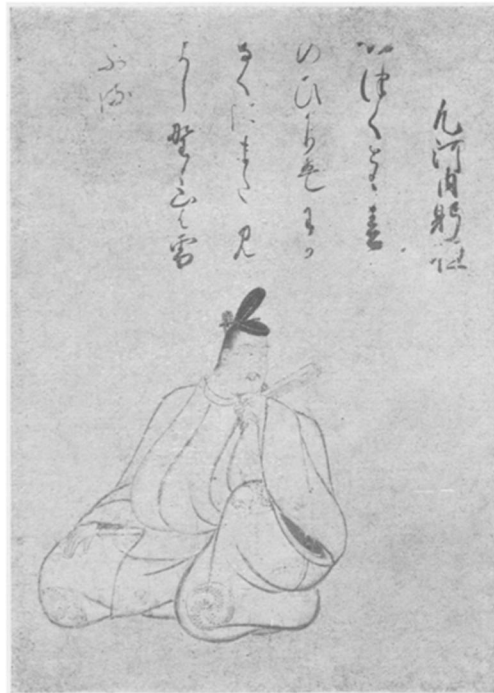 凡河内躬恒
いつくとも春
のひかりはわか
なくにまた見
よし野山は雪
ふる